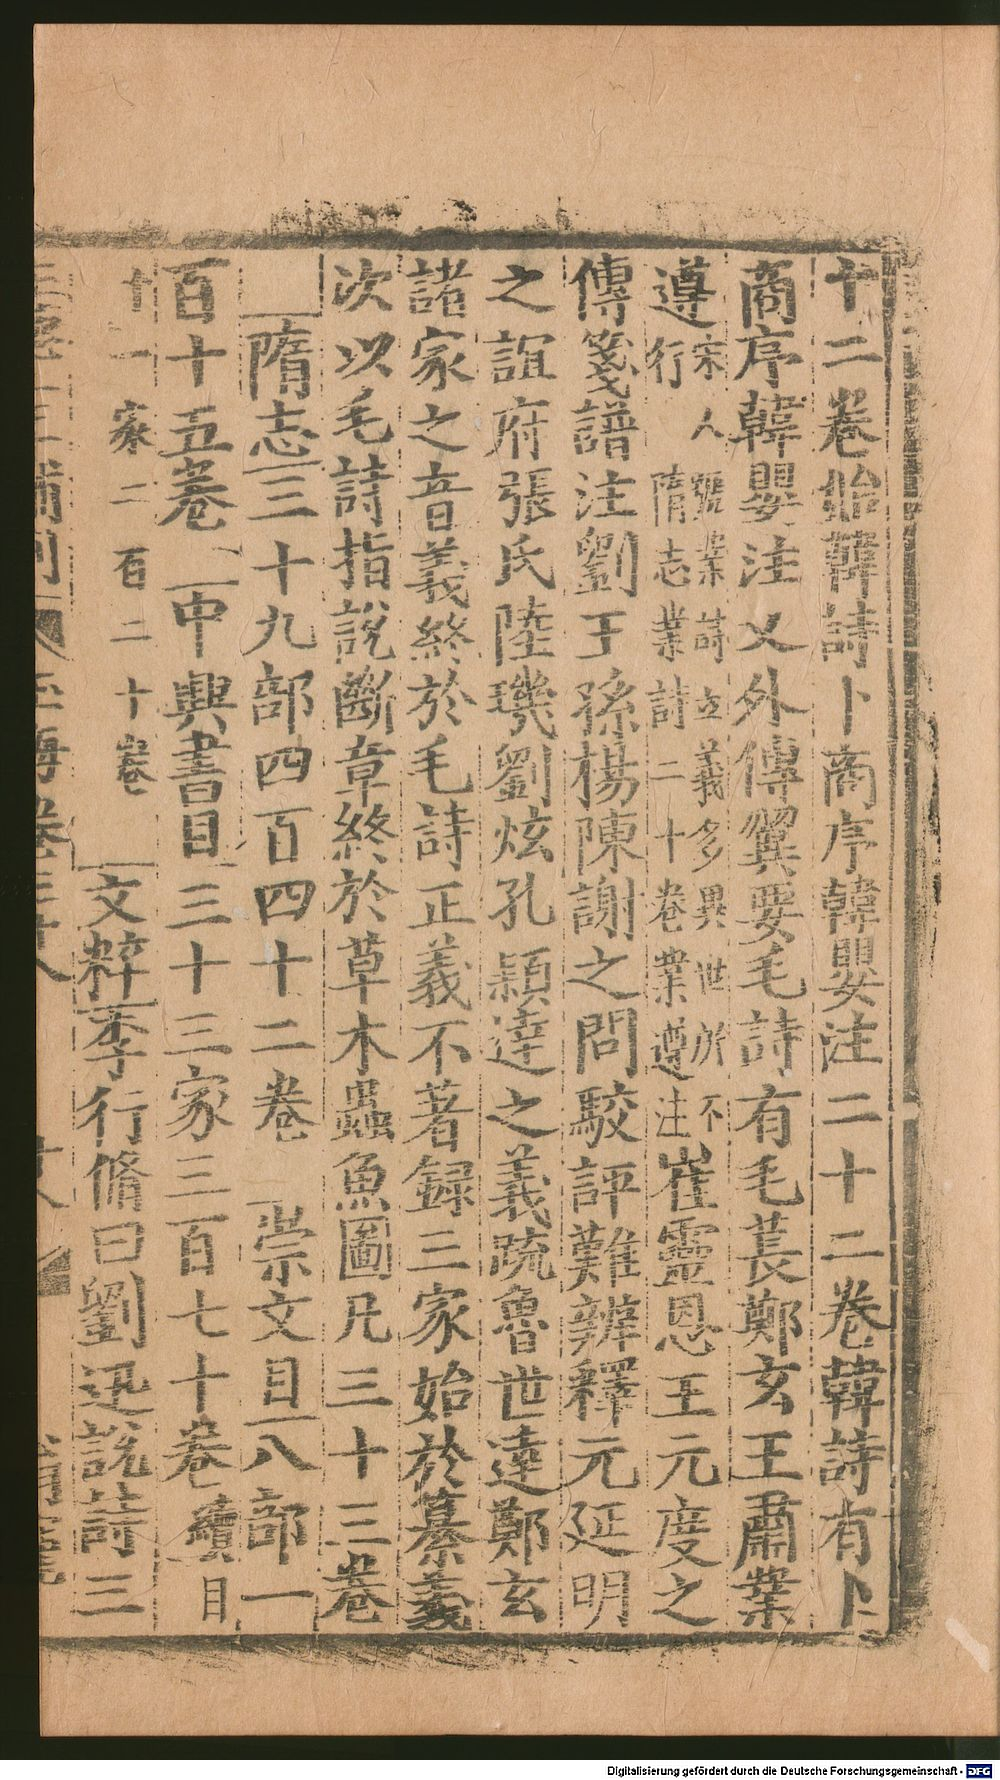 十二卷始韓詩卜商序韓嬰注二十二卷韓詩有卜
商序韓嬰注又外傳翼要毛詩有毛萇鄭玄王肅葉
遵宋人號葉詩立義多異世所不行隋志業詩二十卷業遵注崔靈恩王元度之
傳箋譜注劉王孫楊陳謝之問駮評難辨釋元延明
之誼府張氏陸璣劉炫孔穎達之義疏魯世達鄭玄
諸家之音義終於毛詩正義不著録三家始於纂義
次以毛詩指説斷章終於草木蟲魚圖凡三十三卷
隋志三十九部四百四十二卷 崇文目八部一
百十五卷 中興書目三十三家三百七十卷續目
十一家二百二十卷 文粹李行脩曰劉迅説詩三
玉海卷三十八
Digitalisierung gefördert durch die Deutsche Forschungsgemeinschaft - DFG